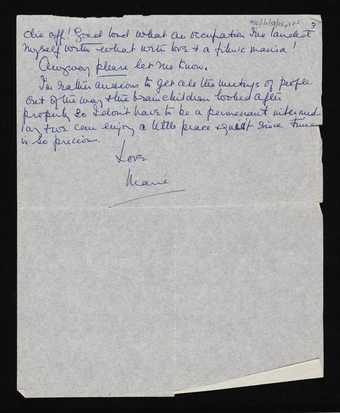 die off! Good Lord what an occupation I've landed
myself with - what with love & a film mania!
Anyway please let me know.
I'm rather anxious to get all the meetings of people
out of the way & the brainchildren looked after
properly so I don't have to be a permanent
& we can enjoy a little peace & quiet since time
is so precious.
Love
Marie